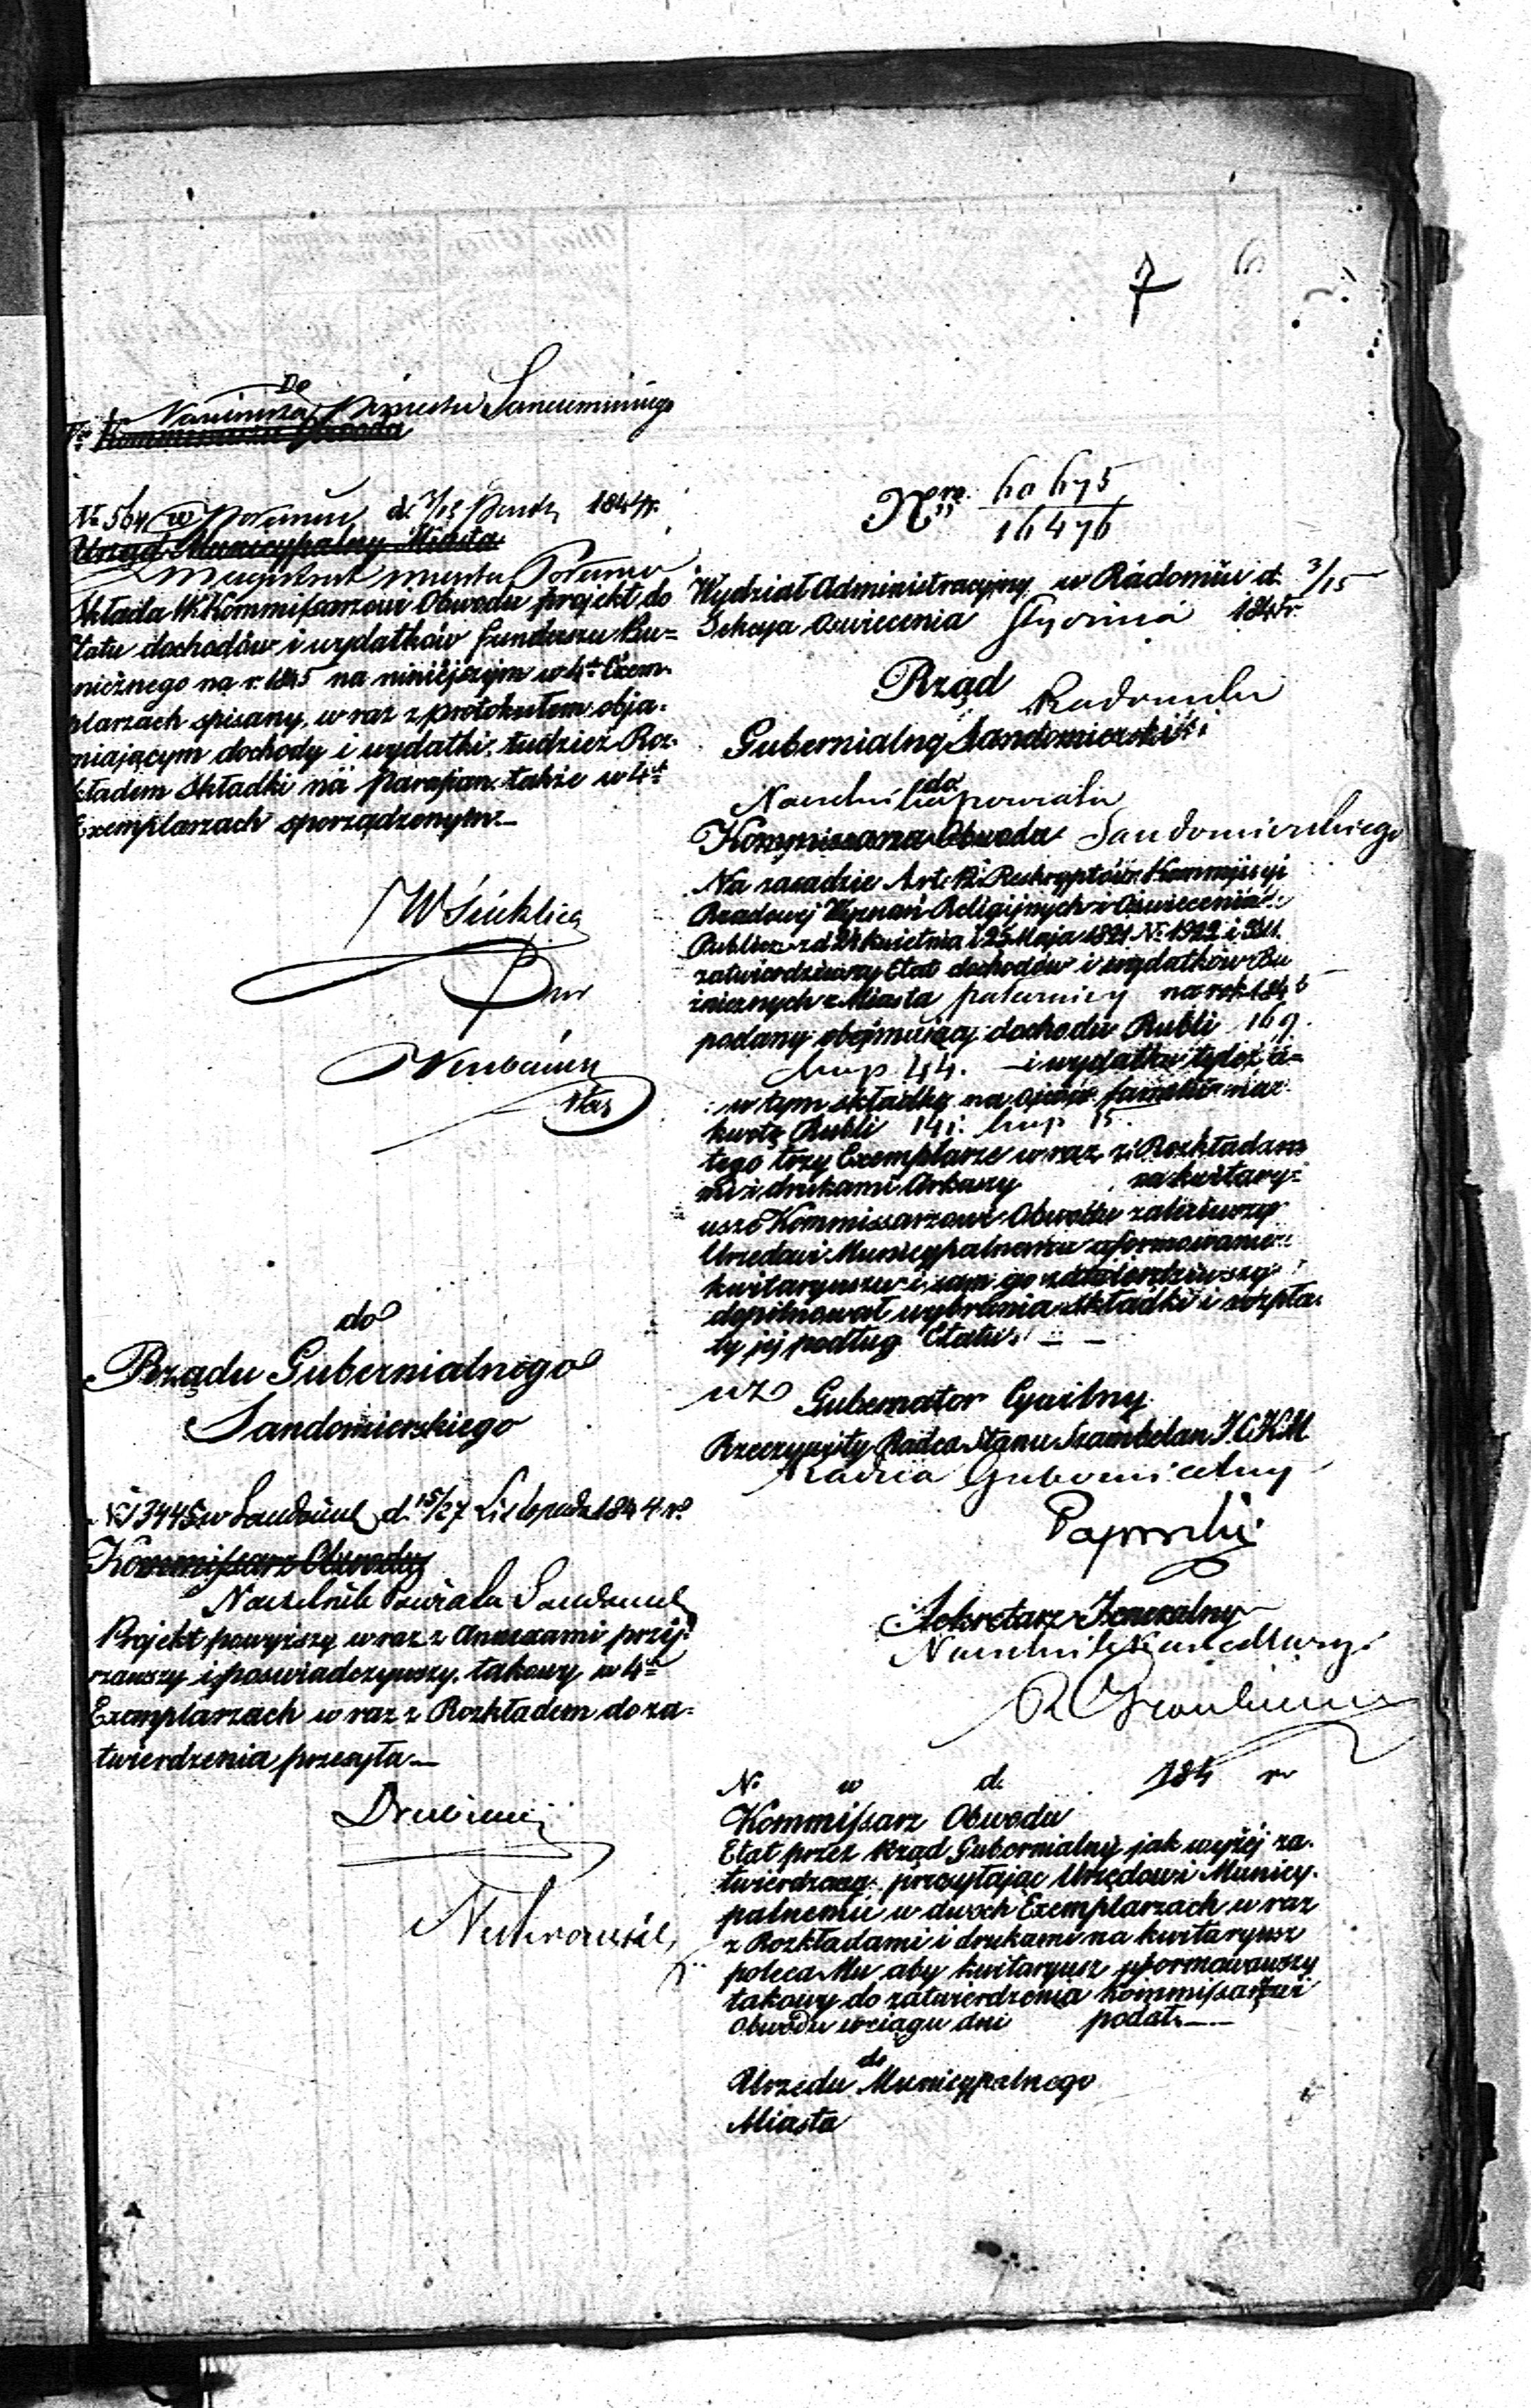 7
6
Do
Naczelnika Powiatu Sandomirskiego
Kommissarza Obwodu
No 564 w d. 3/15 1844 r.
Urząd Municypalny Miasta
Magistrat miasta
Składa W. Kommissarzowi Obwodu projekt do
Etatu dochodów i wydatków funduszu Bu=
źnicznego na r. 1845 na niniéjszym w 4ch Exem-
plarzach spisany, w raz z protokułem obja-
śniającym dochody i wydatki, tudzież Roz-
kładem składki na Parafian także w 4ch
Exemplarzach sporządzonym.—
do
Rządu Gubernialnego
Sandomierskiego
No 13445 w d. 15/27 Listopada 1844 r.
Kommissarz Obwodu
Naczelnik Powiatu
Projekt powyższy w raz z Annexami przéj-
rzawszy i poświadczywszy, takowy w 4ch
Exemplarzach w raz z Rozkładem do za-
twierdzenia przesyła—
Nro 60675
16476
Wydział Administracyjny w Radomiu d. 3/15
Sekcya Oświecenia Stycznia 184 r.
Rząd
Radomski
Gubernialny Sandomierski
do
Naczelnika powiatu
Kommissarza Obwodu Sandomierskiego
Na zasadzie Art. 12 Reskryptów Kommissyi
Rządowej Wyznań Religijnych i Oświecenia
Publicz. z d. 24 kwietnia i 25 Maja 1821 No 1922 i
zatwierdziwszy Etat dochodów i wydatków Bu
źnicznych z Miasta na rok 184
podany obejmujący dochodu Rubli 169.
kop 44. — i wydatku tyleż, a=
w tym składkę na familie na
kwotę Rubli 141. kop 15.
tego trzy Exemplarze w raz z Rozkłada
mi i drukami Arkuszy na kwitary=
usze Kommissarzowi Obwodu
Urzędowi Municypalnemu uformowanie
kwitaryuszu i sam go zatwierdziwszy
dopilnował wybrania składki i wypła-
ty jéj podług Etatu. — —
wz Gubernator Cywilny
Rzeczywisty Radca Stanu Szambelan J.C.K.M
Radca Gubernialny
Sekretarz Jeneralny
Naczelnik Kancellaryi
No w d. 184 r
Kommissarz Obwodu
Etat przez Rząd Gubernialny jak wyżéj za-
twierdzony przesyłając Urzędowi Municy-
palnemu w dwóch Exemplarzach w raz
z Rozkładami i drukami na kwitaryusz
poleca Mu aby kwitaryusz uformowawszy
takowy do zatwierdzenia Kommissarzowi
Obwodu w ciągu dni podał.—
do
Urzędu Municypalnego
Miasta